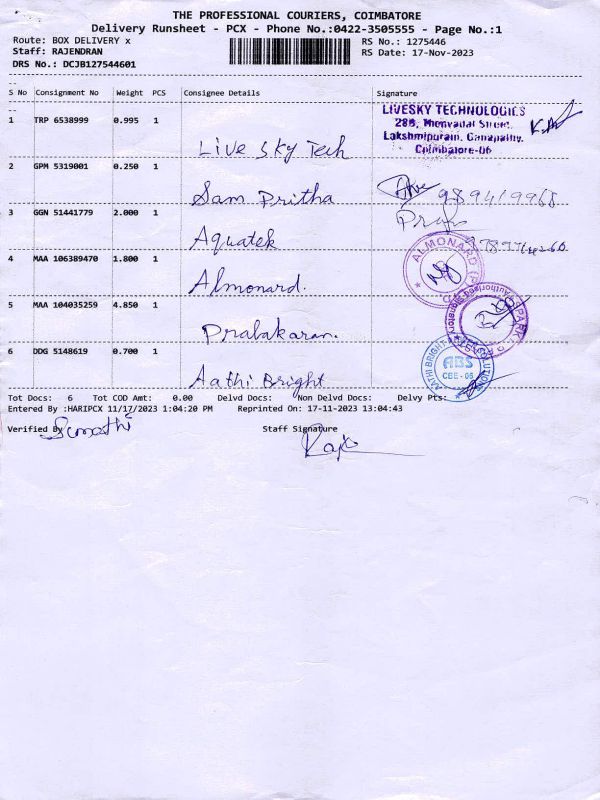 THE PROFESSIONAL COURIERS, COIMBATORE
Delivery Runsheet - PCX - Phone No.:0422-3505555 - Page No.:1
Route: BOX DELIVERY x RS No.: 1275446
Staff: RAJENDRAN RS Date: 17-Nov-2023
DRS No.: DCJB127544601
S No Consignment No Weight PCS Consignee Details Signature
1 TRP 6538999 0.995 1 Live Sky Tech
LIVESKY TECHNOLOGIES
Street,
Lakshmipuram, Ganapathy,
Coimbatore-06
2 GPM 5319001 0.250 1 Sam Pritha
3 GGN 51441779 2.000 1 Aquatek
4 MAA 106389470 1.800 1 Almonard.
ALMONARD
5 MAA 104035259 4.850 1 Prabakaran.
Authorised Signatory
6 DDG 5148619 0.700 1 Aathi Bright
AATHI BRIGHT SOLUTIONS
ABS
CBE-06
Tot Docs: 6 Tot COD Amt: 0.00 Delvd Docs: Non Delvd Docs: Delvy Pts:
Entered By :HARIPCX 11/17/2023 1:04:20 PM Reprinted On: 17-11-2023 13:04:43
Verified By Sumathi Staff Signature